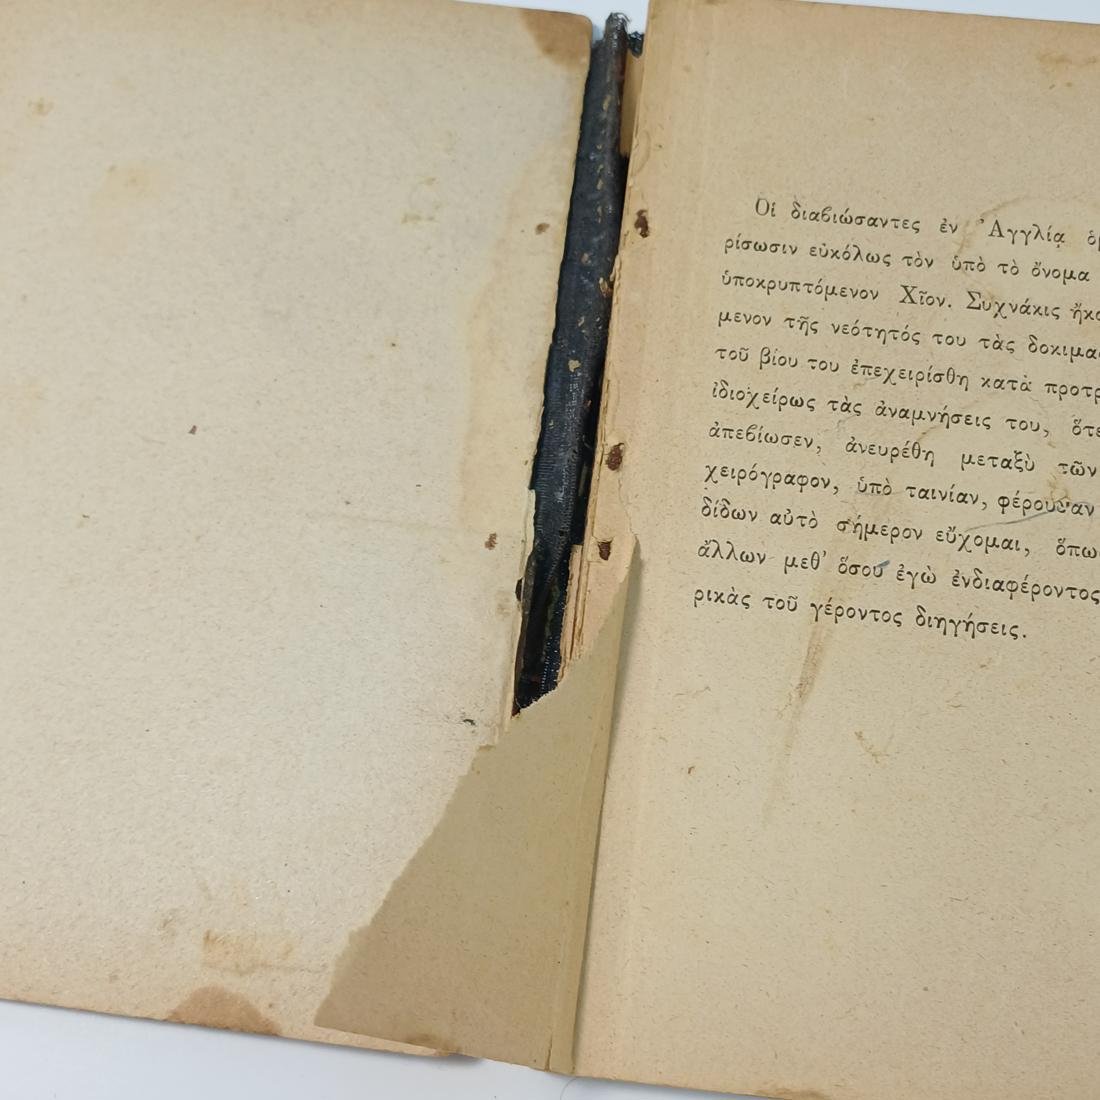 Οἱ διαβιώσαντες ἐν Ἀγγλίᾳ
ρίσωσιν εὐκόλως τὸν ὑπὸ τὸ ὄνομα
ὑποκρυπτόμενον Χῖον. Συχνάκις
μενον τῆς νεότητός του τὰς
τοῦ βίου του ἐπεχειρίσθη κατὰ
ἰδιοχείρως τὰς ἀναμνήσεις του,
ἀπεβίωσεν, ἀνευρέθη μεταξὺ τῶν
χειρόγραφον, ὑπὸ ταινίαν, φέρουσαν
δίδων αὐτὸ σήμερον εὔχομαι,
ἄλλων μεθ' ὅσου ἐγὼ ἐνδιαφέροντος
ρικὰς τοῦ γέροντος διηγήσεις.